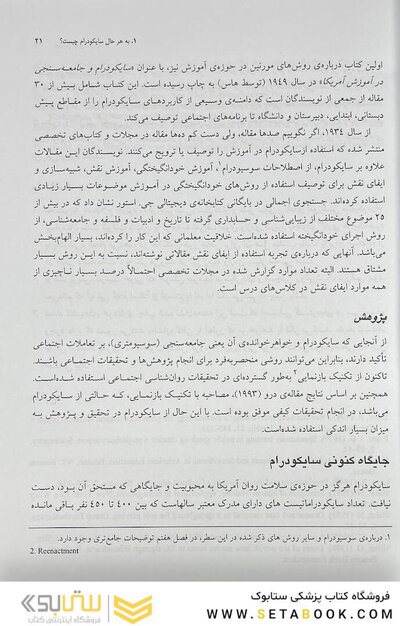 ۱. به هر حال سایکودرام چیست؟ ۲۱
اولین کتاب درباره‌ی روش‌های مورنین در حوزه‌ی آموزش نیز، با عنوان «سایکودرام و جامعه‌سنجی
در آموزش آمریکا» در سال ۱۹۴۹ (توسط هاس) به چاپ رسیده است. این کتاب شامل بیش از ۳۰
مقاله از جمعی از نویسندگان است که دامنه‌ی وسیعی از کاربردهای سایکودرام را از مقاطع پیش
دبستانی، ابتدایی، دبیرستان و دانشگاه تا برنامه‌های اجتماعی توصیف می‌کند.
از سال ۱۹۳۴، اگر نگوییم صدها مقاله، ولی دست کم ده‌ها مقاله در مجلات و کتاب‌های تخصصی
منتشر شده که استفاده ازسایکودرام در آموزش را توصیف یا ترویج می‌کنند. نویسندگان این مقالات
علاوه بر سایکودرام، از اصطلاحات سوسیودرام۱، آموزش خودانگیختگی، آموزش نقش، شبیه‌سازی و
ایفای نقش برای توصیف استفاده از روش‌های خودانگیختگی در آموزش موضوعات بسیار زیادی
استفاده کرده‌اند. جستجوی اجمالی در بایگانی کتابخانه‌ی دیجیتالی جی. استور نشان داد که در بیش از
۲۵ موضوع مختلف از زیبایی‌شناسی و حسابداری گرفته تا تاریخ و ادبیات و فلسفه و جامعه‌شناسی، از
روش اجرای خودانگیخته استفاده شده‌است. خلاقیت معلمانی که این کار را کرده‌اند، بسیار الهام‌بخش
می‌باشد. آنهایی که درباره‌ی تجربه استفاده از ایفای نقش مقالاتی نوشته‌اند، نسبت به این روش بسیار
مشتاق هستند. البته تعداد موارد گزارش شده در مجلات تخصصی احتمالاً درصد بسیار ناچیزی از
همه موارد ایفای نقش در کلاس‌های درس است.
پژوهش
از آنجایی که سایکودرام و خواهرخوانده‌ی آن یعنی جامعه‌سنجی (سوسیومتری)، بر تعاملات اجتماعی
تأکید دارند، بنابراین می‌توانند روشی منحصربه‌فرد برای انجام پژوهش‌ها و تحقیقات اجتماعی باشند
تاکنون از تکنیک بازنمایی۲ به‌طور گسترده‌ای در تحقیقات روان‌شناسی اجتماعی استفاده شده‌است.
همچنین بر اساس نتایج مقاله‌ی درو (۱۹۹۳)، مصاحبه با تکنیک بازنمایی، کـه حالتی از سایکودرام
می‌باشد، در انجام تحقیقات کیفی موفق بوده است. با این حال از سایکودرام در تحقیق و پـژوهش به
میزان بسیار اندکی استفاده شده‌است.
جایگاه کنونی سایکودرام
سایکودرام هرگز در حوزه‌ی سلامت روان آمریکا به محبوبیت و جایگاهی که مستحق آن بـود، دست
نیافت. تعداد سایکودراماتیست های دارای مدرک معتبر سالهاست که بین ۴۰۰ تا ۴۵۰ نفر باقی مانده
۱. درباره‌ی سوسیودرام و سایر روش های ذکر شده در این سطر، در فصل هفتم توضیحات جامع‌تری وجود دارد.
2. Reenactment
فروشگاه کتاب پزشکی ستابوک
WWW.SETABOOK.COM
ستابوک
فروشگاه اینترنتی کتاب